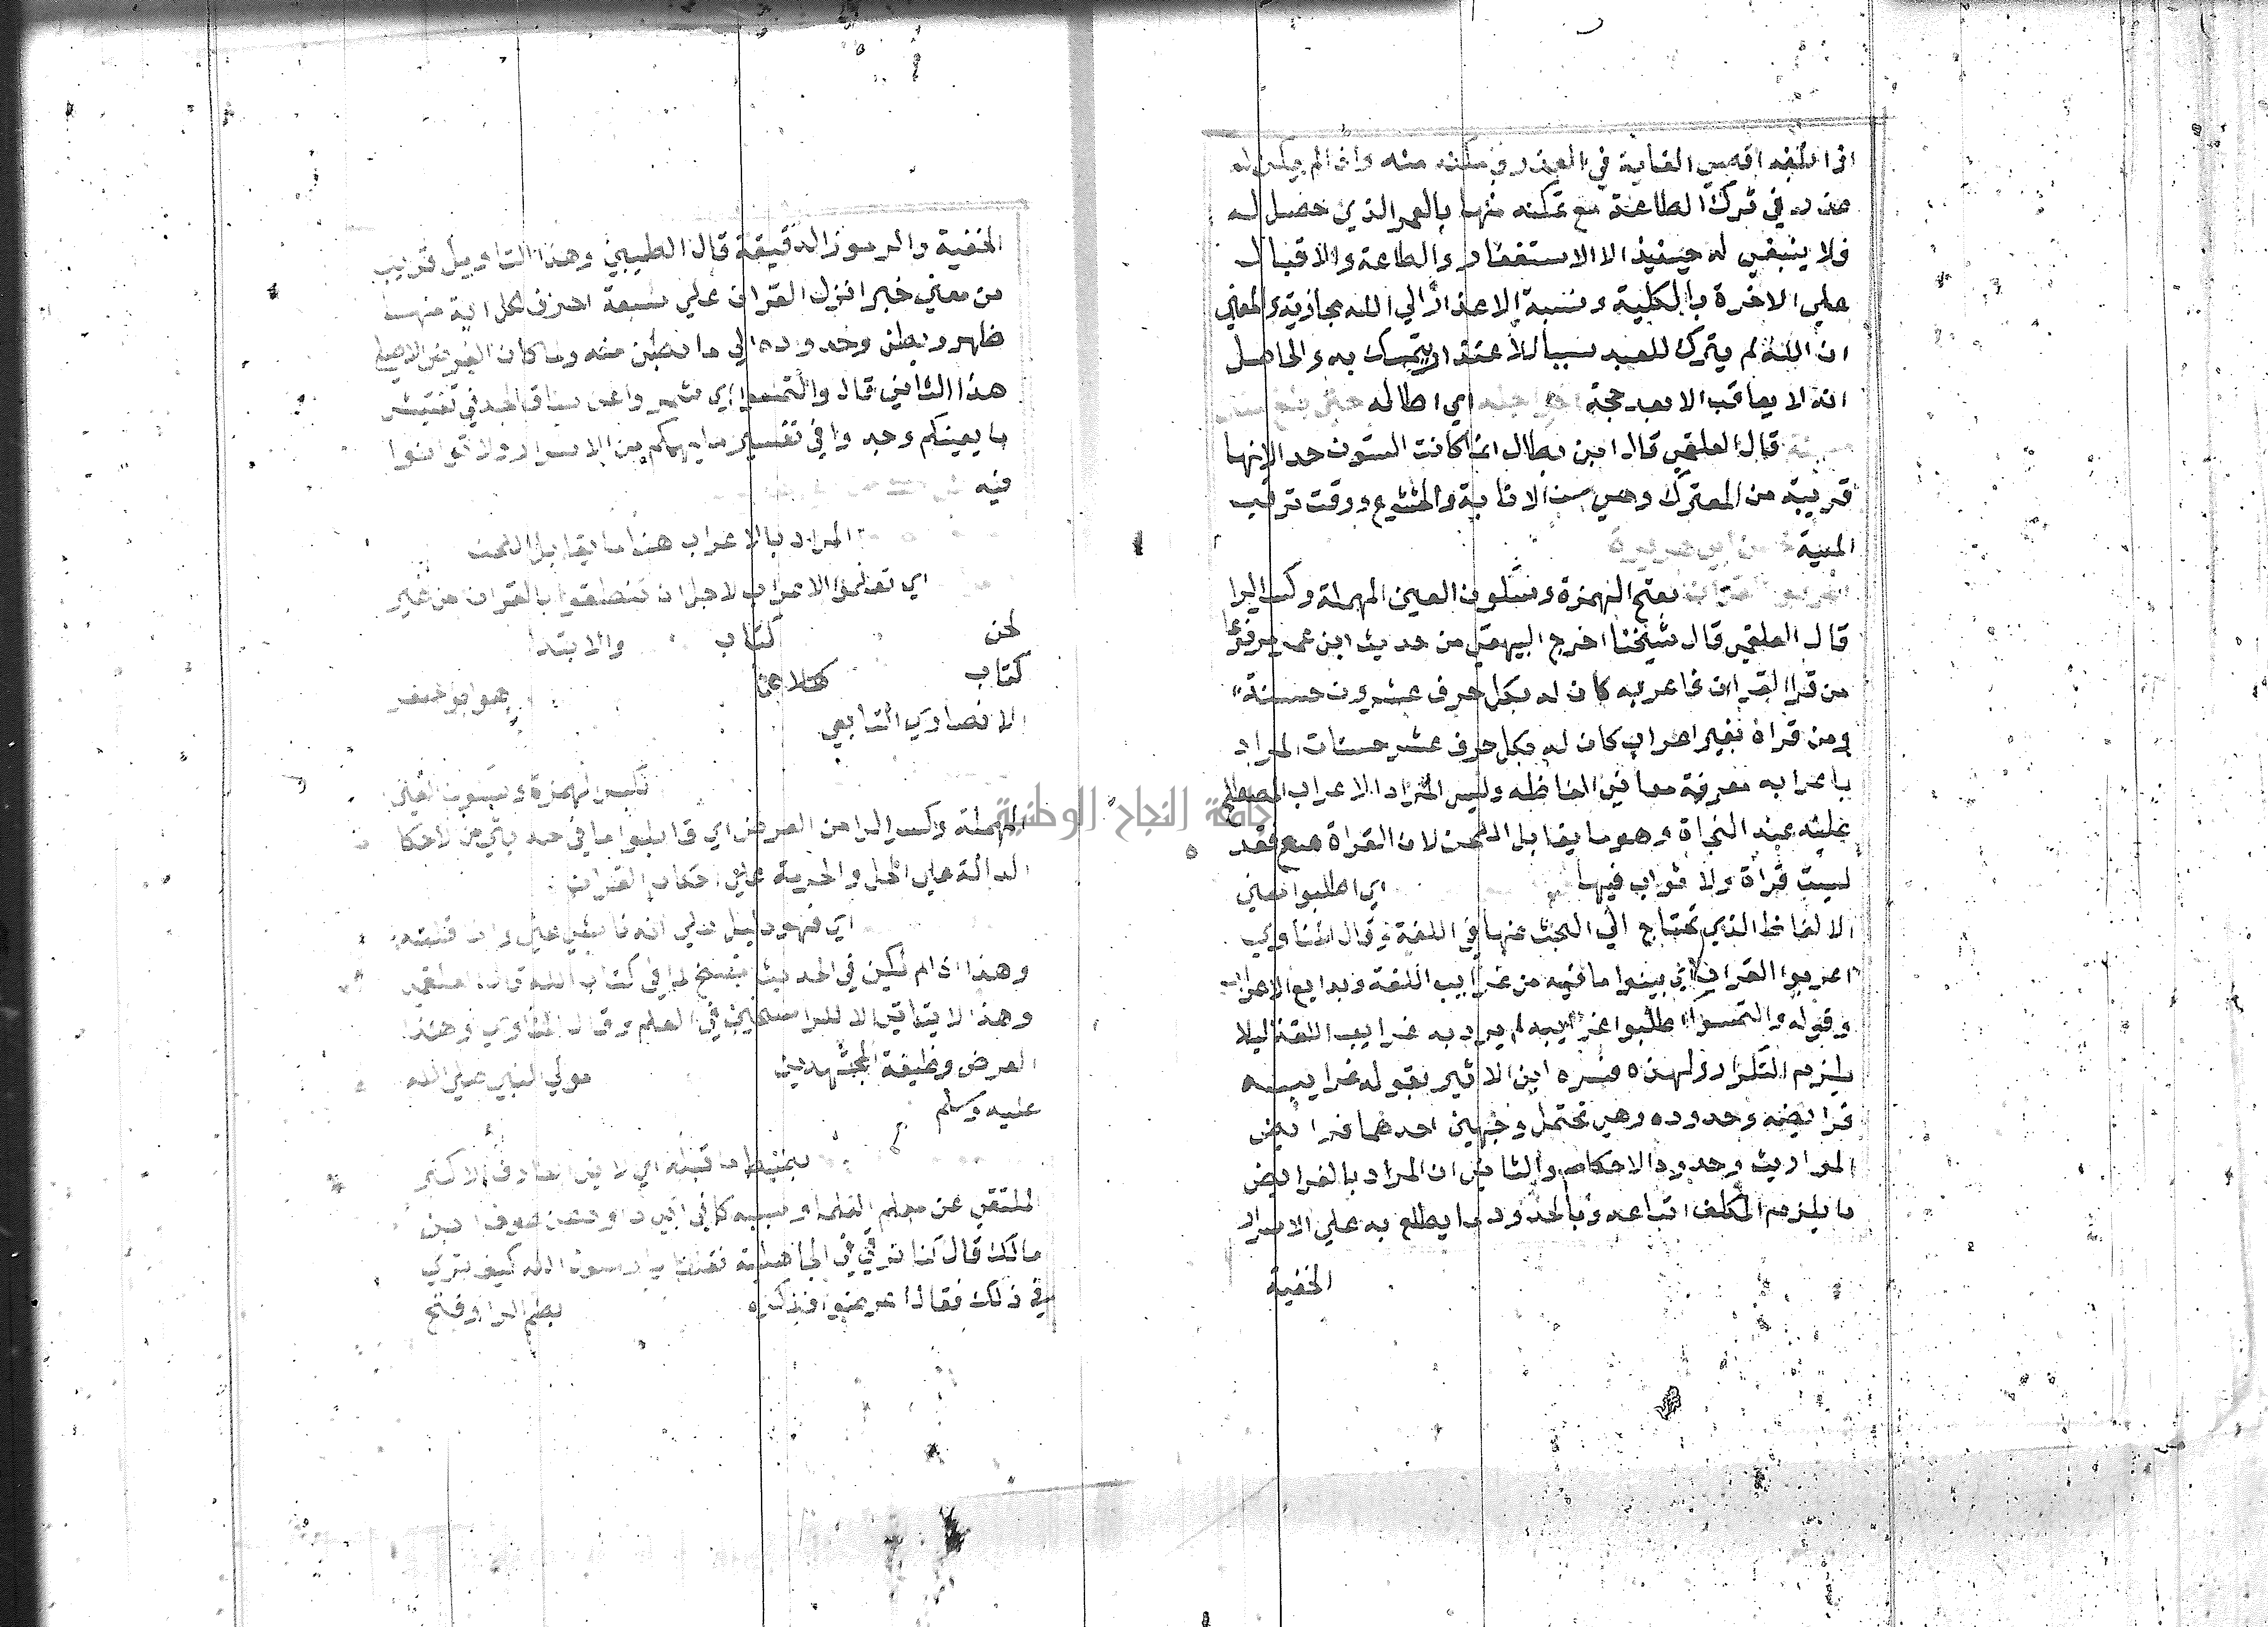 اذا بلغه اقصى الغاية في العذر ومكنه منه واذا لم يكن له
عذر في ترك الطاعة مع تمكنه منها بالعمر الذي حصل له
فلا ينبغي له حينئذ الا الاستغفار والطاعة والاقبال
علي الاخرة بالكلية ونسبة الاعذار الي الله مجازية والمعني
ان الله لم يترك للعبد سببا للاعتذار يتمسك به والحاصل
انه لا يعاقب الا بعد حجة اخر اجله اي اطاله حتى بلغ ستين
سنة قال العلقمي قال ابن بطال انما كانت الستون حدا لانها
قريبة من المعترك وهي سن الانابة والخشوع ووقت ترقب
المنية خ عن ابي هريرة
اعربوا القران بفتح الهمزة وسكون العين المهملة وكسر الرا
قال العلقمي قال شيخنا اخرج البيهقي من حديث ابن عمر مرفوعا
من قرا القران فاعربه كان له بكل حرف عشرون حسنة
ومن قراه بغير اعراب كان له بكل حرف عشر حسنات المراد
باعرابه معرفة معاني الفاظه وليس المراد الاعراب المصطلح
عليه عند النحاة وهو ما يقابل اللحن لان القراة مع فقده
ليست قراة ولا ثواب فيها اي اطلبوا معني
الالفاظ الذي تحتاج الي البحث عنها في اللغة وقال المناوي
اعربوا القران اي بينوا ما فيه من غرايب اللغة وبدايع الاعراب
وقوله والتمسوا اطلبوا غرايبه لم يرد به غرايب اللغة ليلا
يلزم التكرار ولهذا فسره ابن الاثير بقوله غرايبه
فرايضه وحدوده وهي تحتمل وجهين احدهما فرايض
المواريث وحدود الاحكام والثاني ان المراد بالفرايض
ما يلزم المكلف اتباعه وبالحدود ما يطلع به علي الاسرار
الخفية
الخفية والرموز الدقيقة قال الطيبي وهذا التاويل قريب
من معني خبر انزل القران علي سبعة احرف لكل اية منها
ظهر وبطن وحدوده الي ما بطن منه ولما كان الغرض الاصلي
هذا الثاني قال والتمسوا اي شمروا عن ساق الجد في تفتيش
ما يعنيكم وجدوا في تفسير ما يهمكم من الاسرار ولا تتوانوا
فيه
المراد بالاعراب هنا ما يقابل اللحن
اي تعلموا الاعراب لاجل ان تنطقوا بالقران من غير
لحن كتاب والابتدا
كتاب عن هو ابو جعفر
الانصاري التابعي
بكسر الهمزة وسكون العين
المهملة وكسر الرا من العرض اي قابلوا ما في حديثي من الاحكام
الدالة علي الحل والحرمة علي احكام القران
اي فهو دليل علي انه ناشي عني وانا قلته
وهذا اذا لم يكن في الحديث نسخ لما في كتاب الله قال العلقمي
وهذا لا يتاتي الا للراسخين في العلم وقال المناوي وهذا
العرض وظيفة المجتهدين مولي النبي صلي الله
عليه وسلم
بمعني ما قبله اي لاني العارف الاكبر
الملتقي عن معلم العلما وسببه كما في ابي داود عن عوف ابن
مالك قال كنا نرقي في الجاهلية فقلنا يا رسول الله كيف تري
في ذلك فقال اعرضوا فذكره بضم الرا وفتح
جامعة النجاح الوطنية